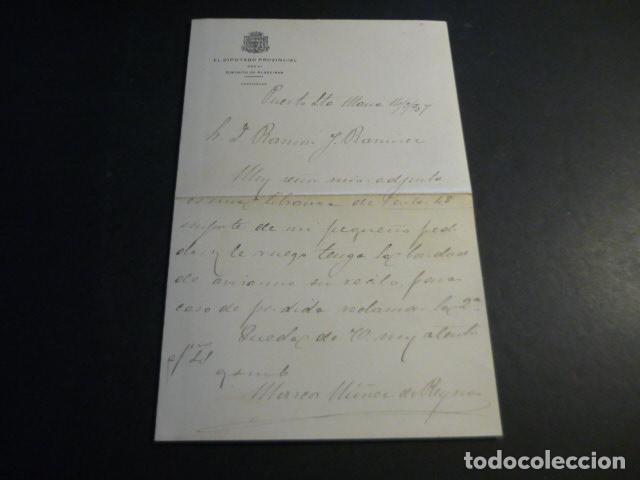 EL DIPUTADO PROVINCIAL
POR EL
DISTRITO DE
Puerto Sta Maria
S. D. Ramón J. Ramirez
Muy señor mio: adjunta
libranza de Ptas. 48
importe de mi pequeño pedi
do, y le ruego tenga la bondad
de avisarme su recibo, para
caso de perdida reclamar la 2ª
Queda de V. muy atento
s. s.
q s m b
Marcos Núñez de Reynoso
todocoleccion.net